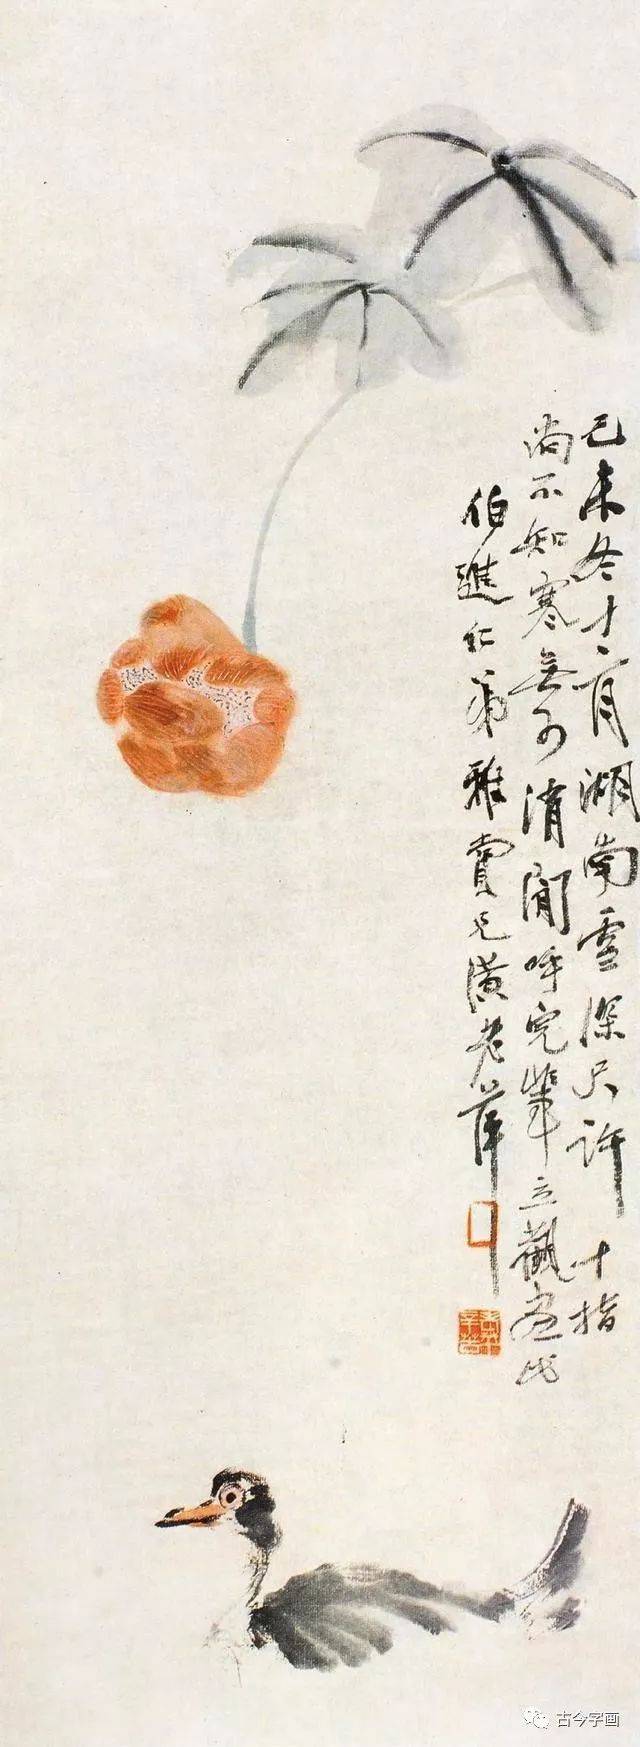 己未冬十二月湖南雪深尺許十指
尚不知寒無可消閒呼兒輩立觀畫此
伯進仁弟雅賞兄璜老萍
古今字画